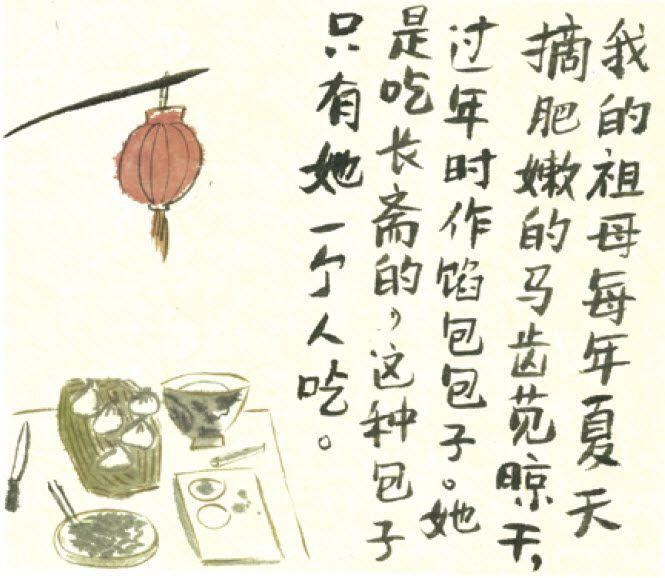 我的祖母每年夏天
摘肥嫩的马齿苋晾干，
过年时作馅包包子。她
是吃长斋的，这种包子
只有她一个人吃。